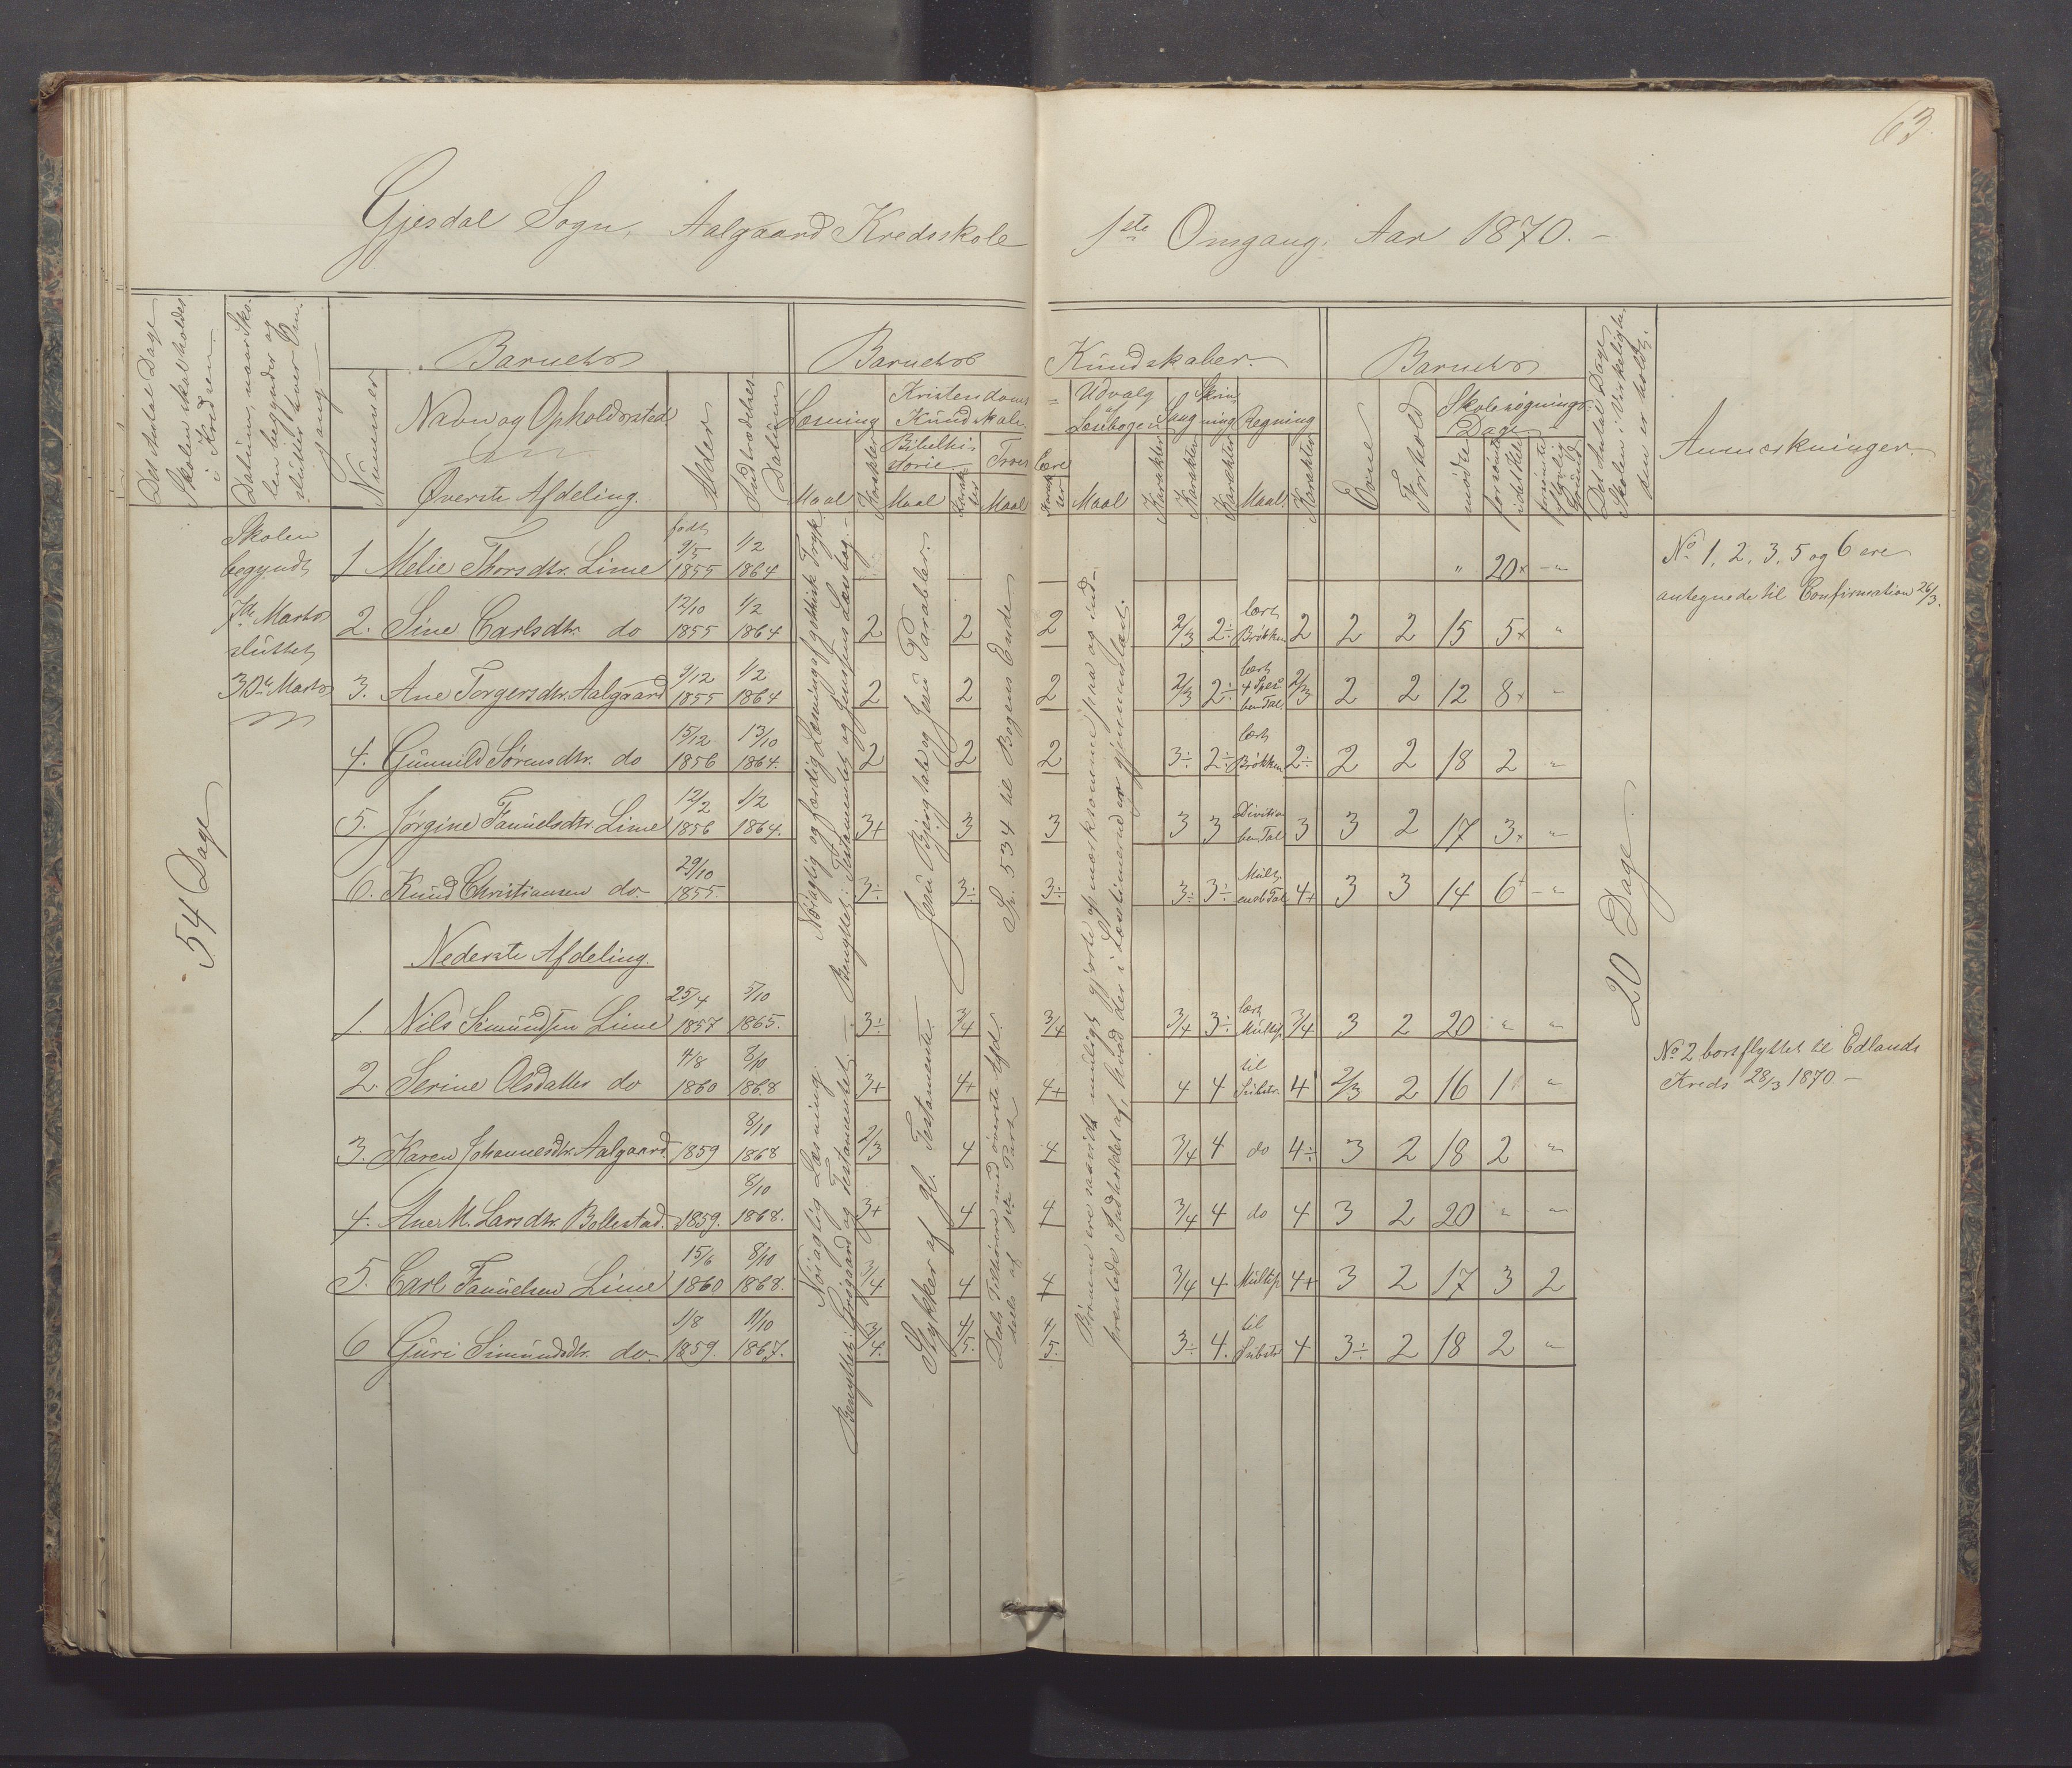 63.
Gjesdal Sogn, Aalgaard Kredsskole 1ste Omgang. Aar 1870. –
Det Antal Dage Skolen skal holdes i Kredsen.
Datum, naar Skolen begynder og slutter hver Omgang
Barnets
Nummer
Navn og Opholdssted
Øverste Afdeling.
Alder
Indtrædelses Datum
Barnets Kundskaber.
Læsning
Maal
Karakter
Kristendoms= Kundskab.
Bibelhistorie.
Maal
Karakter
Troeslære
Maal
Karakter
Udvalg af Læsebogen
Maal
Karakter
Sang
Karakter
Skrivning
Karakter
Regning
Maal.
Karakter
Barnets
Evne
Forhold
Skolesøgnings Dage
mødte
forsømte i det Hele
forsømte af lovlig Grund
Det Antal Dage Skolen i Virkeligheden er holdt.
Anmærkninger.
54 Dage
Skolen
begyndt
7de Marts
sluttet
30te Marts
Nøiagtig og færdig Læsning af gothisk Tryk.
Benyttet: Testamentet og Jensens Læsebog.
Jesu Bjergtale og Jesu Parabler.
Sp. 534 til Bogens Ende
20 Dage.
1 Melie Thorsdtr. Lime født 9/5 1855 1/2 1864 " 20x "
2. Sine Carlsdtr. do 12/10 1855 1/2 1864 2 2 2 2/3 2÷ lært Brøkken 2 2 2 15 5x "
3. Ane Torgersdtr. Aalgaard 9/12 1855 1/2 1864 2 2 2 2/3 2÷ lært 4 Spec. ben. Tal. 2/3 2 2 12 8x "
4. Gunnild Sørensdtr. do 15/12 1856 13/10 1864. 2 2 2 3÷ 2÷ lært Brøkken 2÷ 2 2 18 2 "
5. Jørgine Fanuelsdtr. Lime 12/2 1856 1/2 1864. 3+ 3 3 3 3 Division ben. Tal 3 3 2 17 3x "
6. Knud Christiansen do 29/10 1855. 3÷ 3÷ 3÷ 3÷ 3÷ Mult. enslb Tal 4+ 3 3 14 6+ "
No 1, 2, 3, 5 og 6 ere
antegnede til Confirmation 26/3.
Nederste Afdeling.
Nøiagtig Læsning.
Stykker af gl. Testamente.
1. Nils Simundsen Lime 25/4 1857 5/10 1865. 3÷ 3/4 3/4 3/4 3÷ lært Multip. 3/4 3 2 20 " "
2 Serine Olsdatter do 4/8 1860 8/10 1868 3+ 4+ 4+ 4 4 til Substr. 4 2/3 2 16 1 "
3. Karen Johannesdtr. Aalgaard 1859 8/10 1868 2/3 4 4 3/4 4 do 4÷ 3 2 18 2 "
4. Ane M. Larsdtr. Bollestad. 1859. 8/10 1868. 3+ 4 4 3/4 4 do 4 3 2 20 " "
5. Carl Fanuelsen Lime 15/6 1860 8/10 1868. 3/4 4 4 3/4 4 Multip 4+ 3 2 17 3 2
6 Guri Simundsdtr. do. 1/8 1859. 11/10 1867. 3/4. 4/5. 4/5. 3÷ 4. til Substr 4 3÷ 2 18 2 "
No 2 bortflyttet til Edlands
Kreds 28/3 1870 –